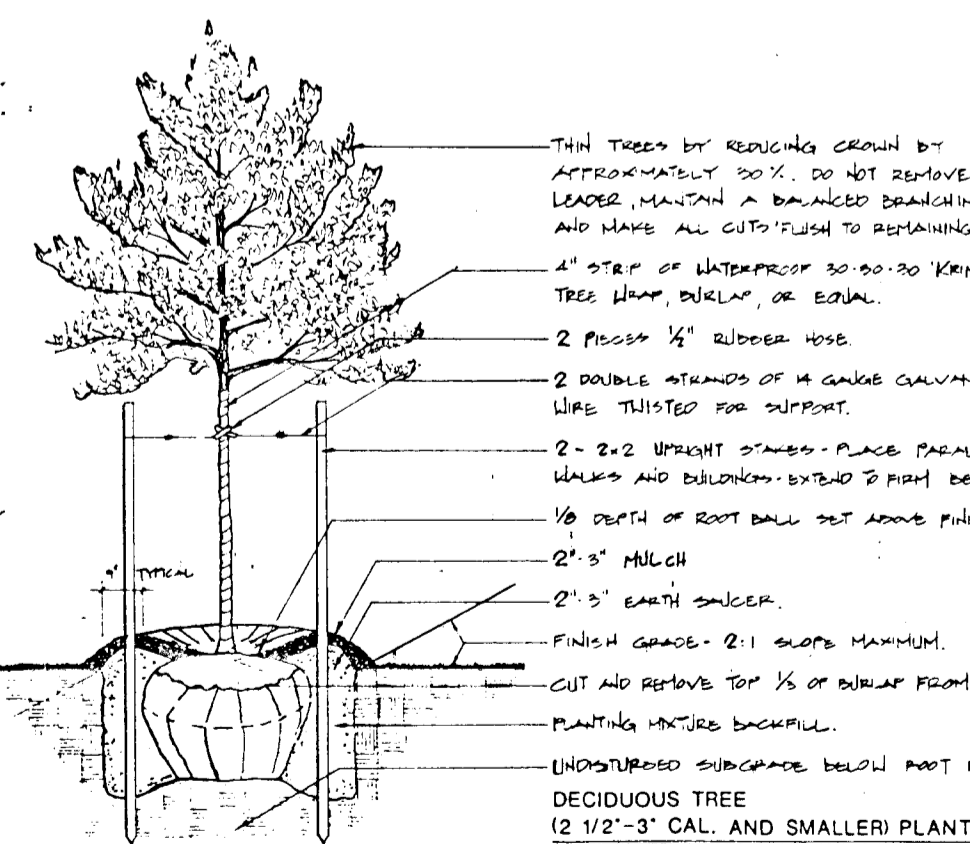 THIN TREES BY REDUCING CROWN BY
APPROXIMATELY 30%. DO NOT REMOVE
LEADER, MANTAIN A BALANCED BRANCHIN
AND MAKE ALL CUTS FLUSH TO REMAINING
4" STRIP OF WATERPROOF 30-30-30 'KRIN
TREE WRAP, BURLAP, OR EQUAL.
2 PIECES 1/2" RUBBER HOSE.
2 DOUBLE STRANDS OF 14 GAUGE GALVAN
WIRE TWISTED FOR SUPPORT.
2 - 2x2 UPRIGHT STAKES - PLACE PARAL
WALKS AND BUILDINGS - EXTEND TO FIRM BE
1/8 DEPTH OF ROOT BALL SET ABOVE FINI
9" TYPICAL
2"-3" MULCH
2"-3" EARTH SAUCER.
FINISH GRADE - 2:1 SLOPE MAXIMUM.
CUT AND REMOVE TOP 1/3 OF BURLAP FROM
PLANTING MIXTURE BACKFILL.
UNDISTURBED SUBGRADE BELOW ROOT
DECIDUOUS TREE
(2 1/2"-3" CAL. AND SMALLER) PLANT